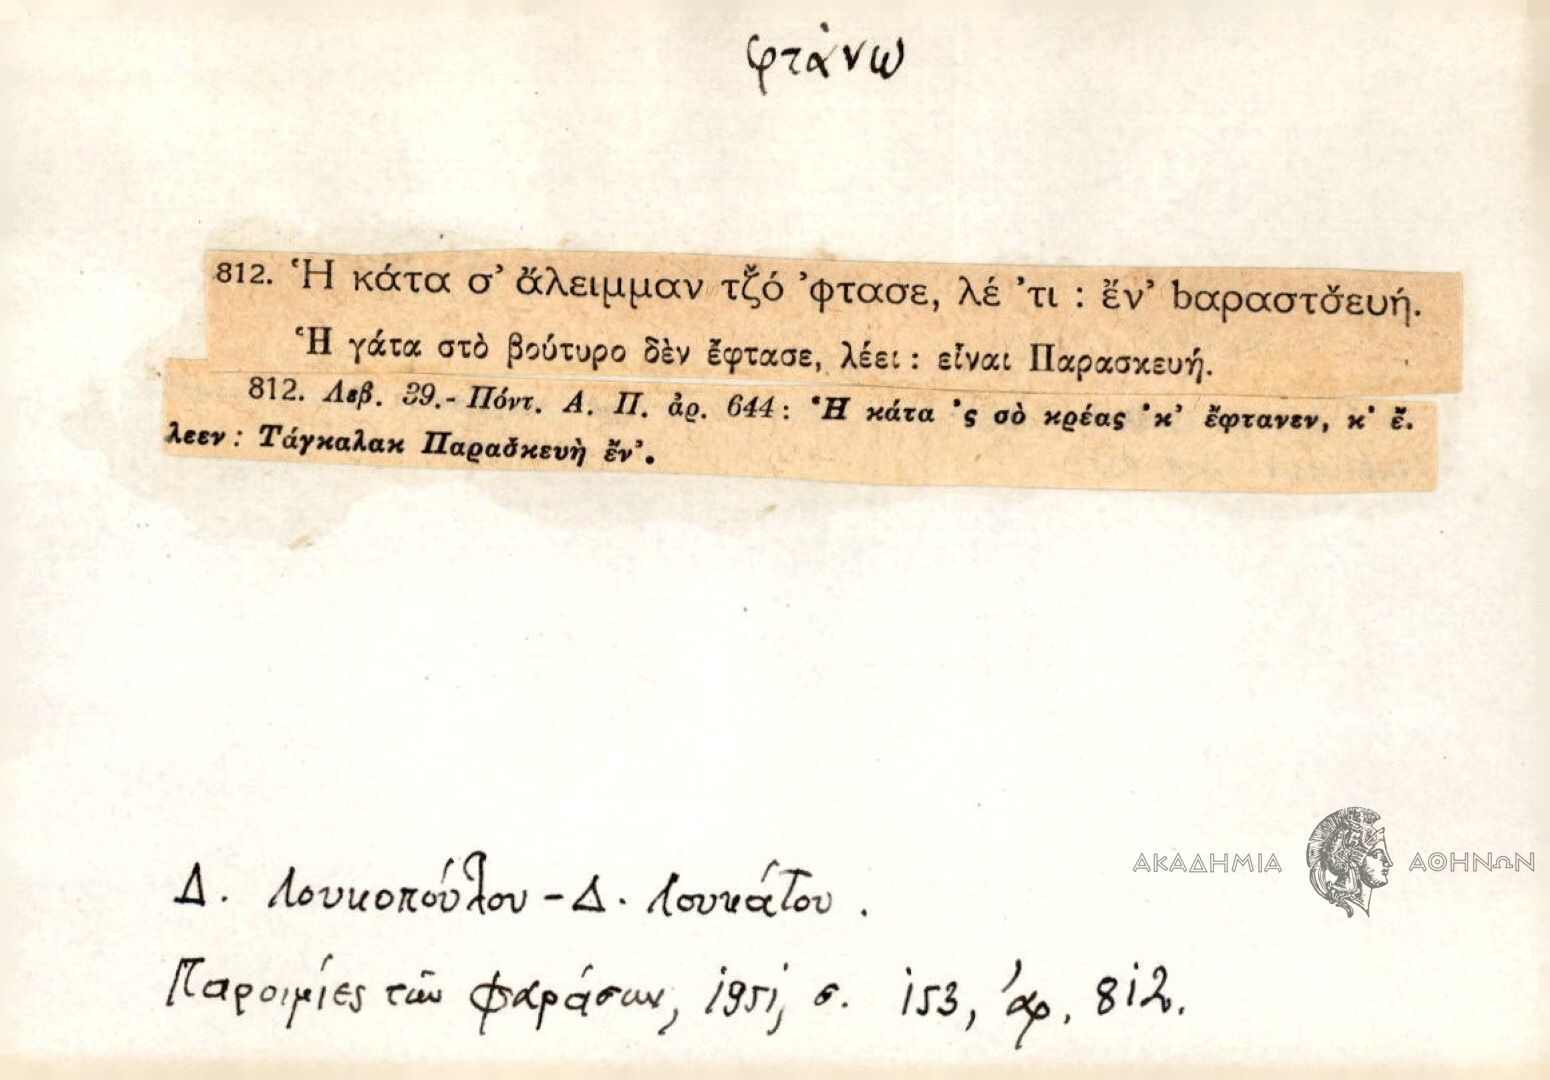 φτάνω
812. Ἡ κάτα σ' ἄλειμμαν τζ̌ό 'φτασε, λέ 'τι : ἔν' bαραστσ̌ευή.
Ἡ γάτα στὸ βούτυρο δὲν ἔφτασε, λέει : εἶναι Παρασκευή.
812. Λεβ. 39.- Πόντ. Α. Π. ἀρ. 644 : Ἡ κάτα 'ς σὸ κρέας 'κ' ἔφτανεν, κ' ἔ.
λεεν : Τάγκαλακ Παρασ̌κευὴ ἔν'.
Δ. Λουκοπούλου - Δ. Λουκάτου.
Παροιμίες τῶν Φαράσων, 1951, σ. 153, ἀρ. 812.
ΑΚΑΔΗΜΙΑ ΑΘΗΝΩΝ